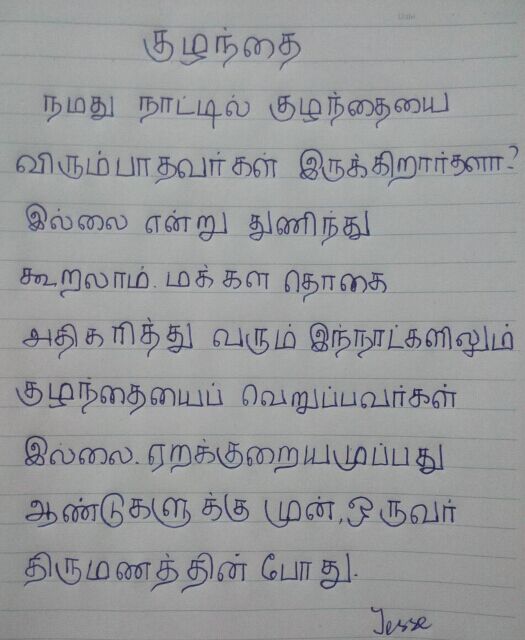 குழந்தை
நமது நாட்டில் குழந்தையை
விரும்பாதவர்கள் இருக்கிறார்களா?
இல்லை என்று துணிந்து
கூறலாம். மக்கள தொகை
அதிகரித்து வரும் இந்நாட்களிலும்
குழந்தையைப் வெறுப்பவர்கள்
இல்லை. ஏறக்குறைய முப்பது
ஆண்டுகளுக்கு முன், ஒருவர்
திருமணத்தின் போது.
Jesse